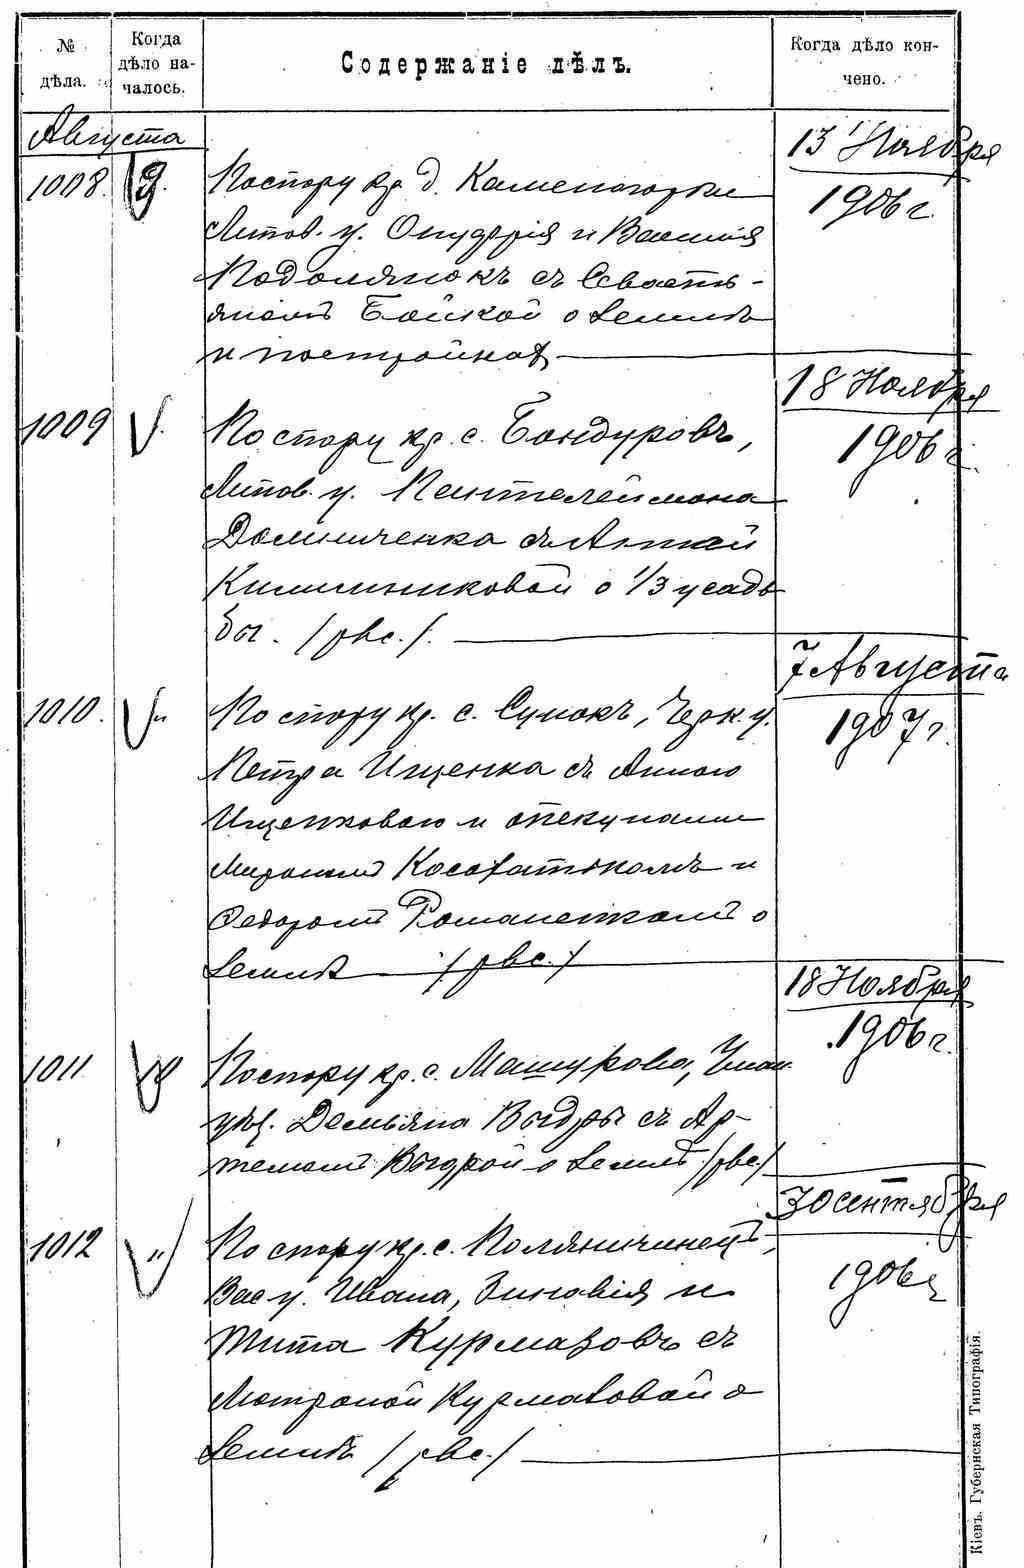 № дѣла.
Когда дѣло на-
чалось.
Содержаніе дѣлъ.
Когда дѣло кон-
чено.
Августа
1008. 9.
По спору кр. д. Каменогорки
Липов. у. и Василія
Подолянокъ съ Севасть-
яномъ Бойкой о землѣ
и постройкахъ
13 Ноября
1906 г.
1009
По спору кр. с. Бондуровъ,
Липов. у. Пантелеймона
Доминченка съ Анной
Килимниковой о 1/3 усадь
бы. /рвс./.
18 Ноября
1906 г.
1010. "
По спору кр. с. Сунокъ, Черк. у.
Петра Ищенка съ Анною
Ищенковою и опекунами
Мирономъ и
Федоромъ Романенкомъ о
землѣ /рвс./
7 Августа
1907 г.
1011 "
По спору кр. с. Машурова, Уман.
уѣз. Демьяна Выдры съ Ар-
темомъ Выдрой о землѣ /рвс./
18 Ноября
1906 г.
1012 "
По спору кр. с. Поляничинецъ,
Вас у. Ивана, Зиновія и
Тита Курмазовъ съ
Мотроной Курмазовой о
землѣ /рвс./
30 сентября
1906 г.
Кіевъ. Губернская Типографія.